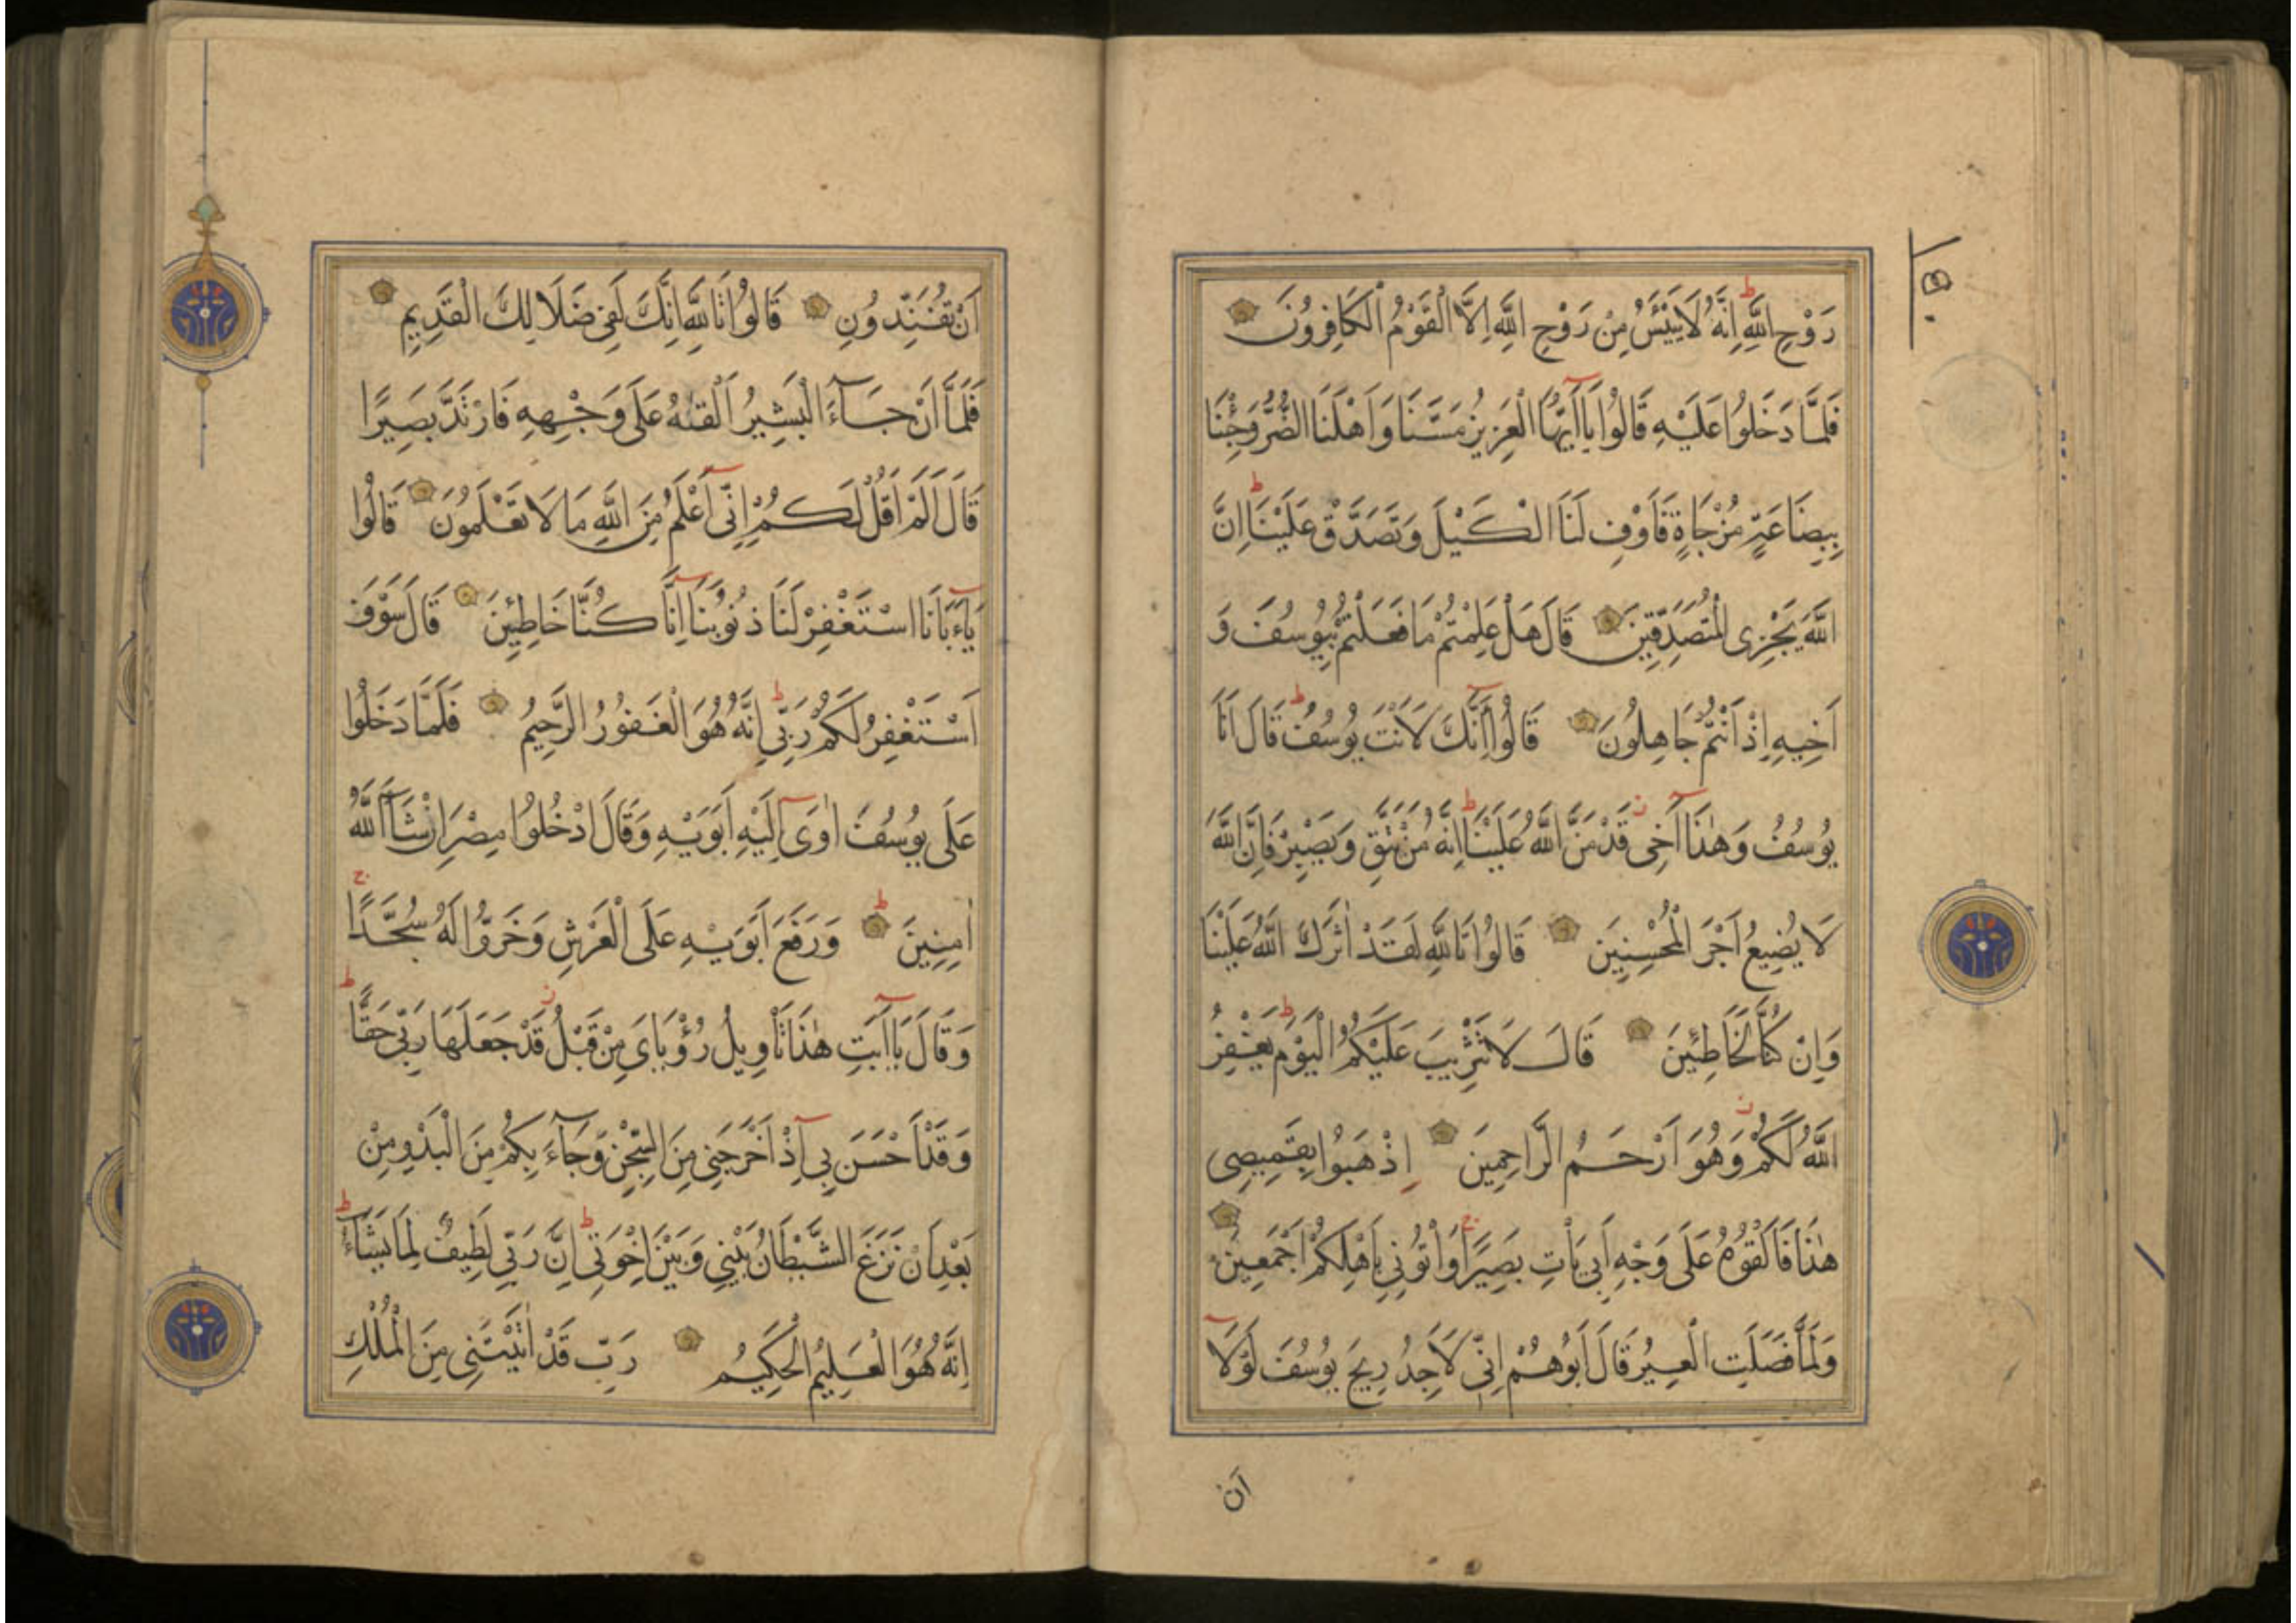 رَوْحِ اللَّهِ اِنَّهُ لَا يَيْئَسُ مِنْ رَوْحِ اللَّهِ اِلَّا الْقَوْمُ الْكَافِرُونَ
فَلَمَّا دَخَلُوا عَلَيْهِ قَالُوا يَا اَيُّهَا الْعَزِيزُ مَسَّنَا وَاَهْلَنَا الضُّرُّ وَجِئْنَا
بِبِضَاعَةٍ مُزْجَاةٍ فَاَوْفِ لَنَا الْكَيْلَ وَتَصَدَّقْ عَلَيْنَا اِنَّ
اللَّهَ يَجْزِى الْمُتَصَدِّقِينَ قَالَ هَلْ عَلِمْتُمْ مَا فَعَلْتُمْ بِيُوسُفَ وَ
اَخِيهِ اِذْ اَنْتُمْ جَاهِلُونَ قَالُوا اَئِنَّكَ لَاَنْتَ يُوسُفُ قَالَ اَنَا
يُوسُفُ وَهٰذَا اَخِى قَدْ مَنَّ اللَّهُ عَلَيْنَا اِنَّهُ مَنْ يَتَّقِ وَيَصْبِرْ فَاِنَّ اللَّهَ
لَا يُضِيعُ اَجْرَ الْمُحْسِنِينَ قَالُوا تَاللَّهِ لَقَدْ اٰثَرَكَ اللَّهُ عَلَيْنَا
وَاِنْ كُنَّا لَخَاطِئِينَ قَالَ لَا تَثْرِيبَ عَلَيْكُمُ الْيَوْمَ يَغْفِرُ
اللَّهُ لَكُمْ وَهُوَ اَرْحَمُ الرَّاحِمِينَ اِذْهَبُوا بِقَمِيصِى
هٰذَا فَاَلْقُوهُ عَلَى وَجْهِ اَبِى يَاْتِ بَصِيرًا وَاْتُونِى بِاَهْلِكُمْ اَجْمَعِينَ
وَلَمَّا فَصَلَتِ الْعِيرُ قَالَ اَبُوهُمْ اِنِّى لَاَجِدُ رِيحَ يُوسُفَ لَوْلَا
اَن
اَنْ تُفَنِّدُونِ قَالُوا تَاللَّهِ اِنَّكَ لَفِى ضَلَالِكَ الْقَدِيمِ
فَلَمَّا اَنْ جَاءَ الْبَشِيرُ اَلْقٰىهُ عَلَى وَجْهِهِ فَارْتَدَّ بَصِيرًا
قَالَ اَلَمْ اَقُلْ لَكُمْ اِنِّى اَعْلَمُ مِنَ اللَّهِ مَا لَا تَعْلَمُونَ قَالُوا
يَاءَبَانَا اسْتَغْفِرْ لَنَا ذُنُوبَنَا اِنَّا كُنَّا خَاطِئِينَ قَالَ سَوْفَ
اَسْتَغْفِرُ لَكُمْ رَبِّى اِنَّهُ هُوَ الْغَفُورُ الرَّحِيمُ فَلَمَّا دَخَلُوا
عَلَى يُوسُفَ اٰوَى اِلَيْهِ اَبَوَيْهِ وَقَالَ ادْخُلُوا مِصْرَ اِنْ شَاءَ اللَّهُ
اٰمِنِينَ وَرَفَعَ اَبَوَيْهِ عَلَى الْعَرْشِ وَخَرُّوا لَهُ سُجَّدًا
وَقَالَ يَا اَبَتِ هٰذَا تَاْوِيلُ رُؤْيَاىَ مِنْ قَبْلُ قَدْ جَعَلَهَا رَبِّى حَقًّا
وَقَدْ اَحْسَنَ بِى اِذْ اَخْرَجَنِى مِنَ السِّجْنِ وَجَاءَ بِكُمْ مِنَ الْبَدْوِ مِنْ
بَعْدِ اَنْ نَزَغَ الشَّيْطَانُ بَيْنِى وَبَيْنَ اِخْوَتِى اِنَّ رَبِّى لَطِيفٌ لِمَا يَشَاءُ
اِنَّهُ هُوَ الْعَلِيمُ الْحَكِيمُ رَبِّ قَدْ اٰتَيْتَنِى مِنَ الْمُلْكِ